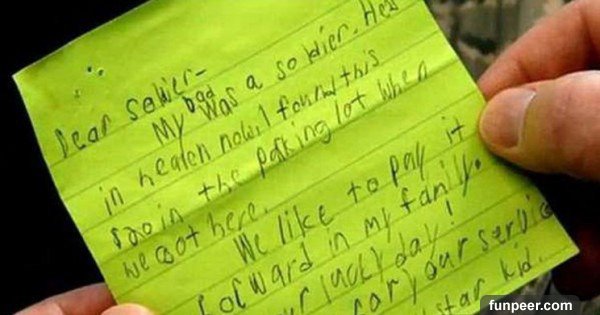 Dear soldier-
My Dad was a soldier. Hes
in heaven now. I found this
in the parking lot when
we got here.
We like to pay it
forward in my family.
ur lucky day!
for your service
star kid.
funpeer.com